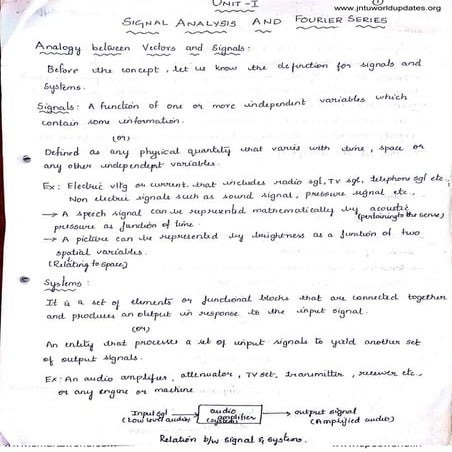 www.jntuworldupdates.org
UNIT - I
①
SIGNAL ANALYSIS AND FOURIER SERIES
Analogy between Vectors and Signals:
Before the concept, let us know the definition for signals and
Systems.
Signals: A function of one or more independent variables which
contain some information.
(or)
Defined as any physical quantity that varies with time, space or
any other independent variables.
Ex: Electric vltg or current that includes radio sgl, TV sgl, telephone sgl etc.,
Non electric signals such as sound signal, pressure signal etc.,
→ A speech signal can be represented mathematically by acoustic
(pertaining to the sense)
pressure as function of time.
→ A picture can be represented by brightness as a function of two
spatial variables.
(Relating to space)
Systems:
It is a set of elements or functional blocks that are connected together
and produces an output in response to the input signal.
(or)
An entity that processes a set of input signals to yield another set
of output signals.
Ex: An audio amplifier, attenuator, TV set, transmitter, receiver etc.
or any engine or machine
Input sgl → audio → output signal
(Low level audio) amplifier (Amplified audio)
(system)
Relation b/w signal & systems.